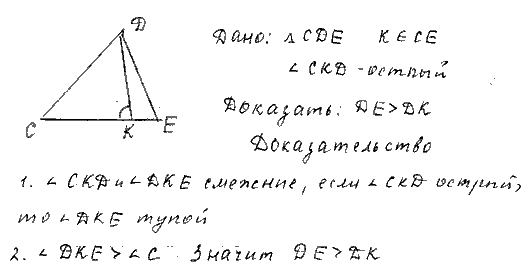 D
C K E
Дано: △ CDE K ∈ CE
∠ CKD - острый
Доказать: DE > DK
Доказательство
1. ∠ CKD и ∠ DKE смежние, если ∠ CKD острый,
то ∠ DKE тупой
2. ∠ DKE > ∠ C Значит DE > DK